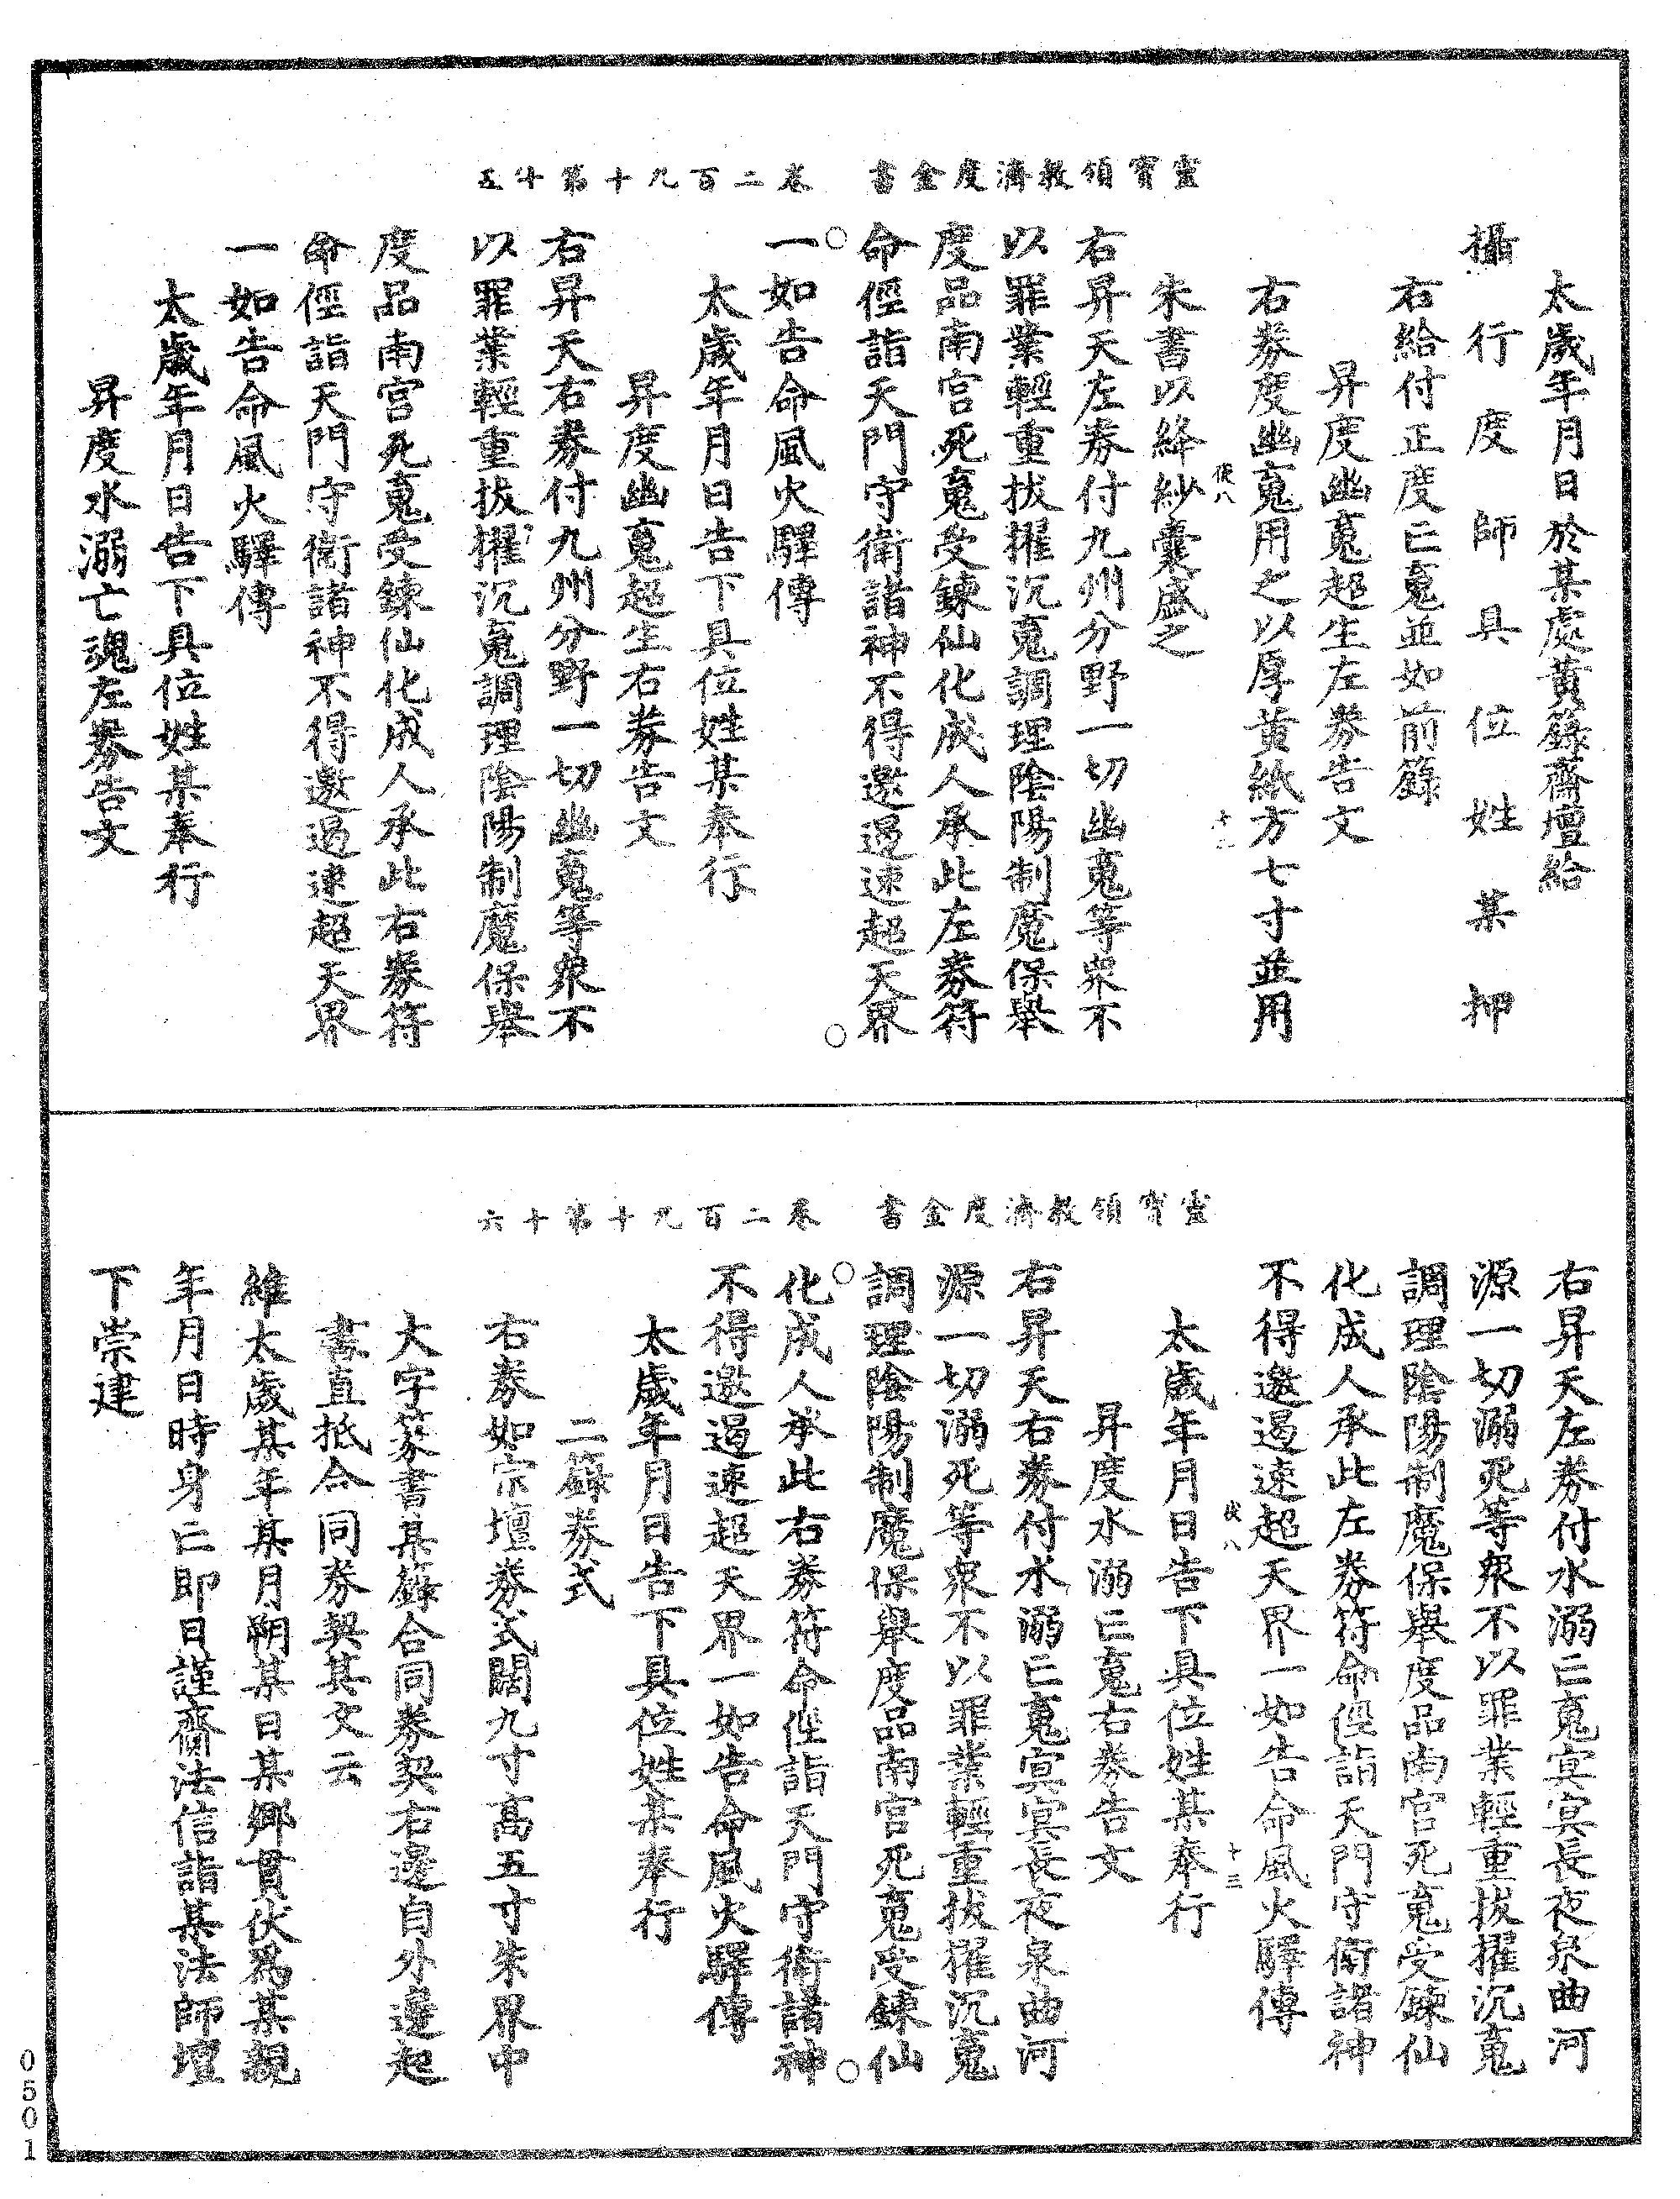 靈寶領教濟度金書　卷二百九十第十五
太歲年月日於某處黃籙齋壇給
攝行度師具位姓某押
右給付正度亡䰟並如前籙
昇度幽䰟超生左券告文
右券度幽䰟用之以厚黃紙方七寸並用
朱書以絳紗囊盛之
右昇天左券付九州分野一切幽䰟等衆不
以罪業輕重拔擢沉䰟調理陰陽制魔保舉
度品南宮死䰟受鍊仙化成人承此左券符
命徑詣天門守衛諸神不得邀遏速超天界
一如告命風火驛傳
太歲年月日告下具位姓某奉行
昇度幽䰟超生右券告文
右昇天右券付九州分野一切幽䰟等衆不
以罪業輕重拔擢沉䰟調理陰陽制魔保舉
度品南宮死䰟受鍊仙化成人承此右券符
命徑詣天門守衛諸神不得邀遏速超天界
一如告命風火驛傳
太歲年月日告下具位姓某奉行
昇度水溺亡魂左券告文
靈寶領教濟度金書　卷二百九十第十六
右昇天左券付水溺亡䰟冥冥長夜泉曲河
源一切溺死等衆不以罪業輕重拔擢沉䰟
調理陰陽制魔保舉度品南宮死䰟受鍊仙
化成人承此左券符命徑詣天門守衛諸神
不得邀遏速超天界一如告命風火驛傳
十三
太歲年月日告下具位姓某奉行
昇度水溺亡䰟右券告文
右昇天右券付水溺亡䰟冥冥長夜泉曲河
源一切溺死等衆不以罪業輕重拔擢沉䰟
調理陰陽制魔保舉度品南宮死䰟受鍊仙
化成人承此右券符命徑詣天門守衛諸神
不得邀遏速超天界一如告命風火驛傳
太歲年月日告下具位姓某奉行
二籙券式
右券如宗壇券式闊九寸高五寸朱界中
大字篆書某籙合同券契右邊自外邊起
書直抵合同券契其文云
維太歲某年某月朔某日某鄉貫伏爲某親
年月日時身亡即日謹齋法信詣某法師壇
下崇建
0501